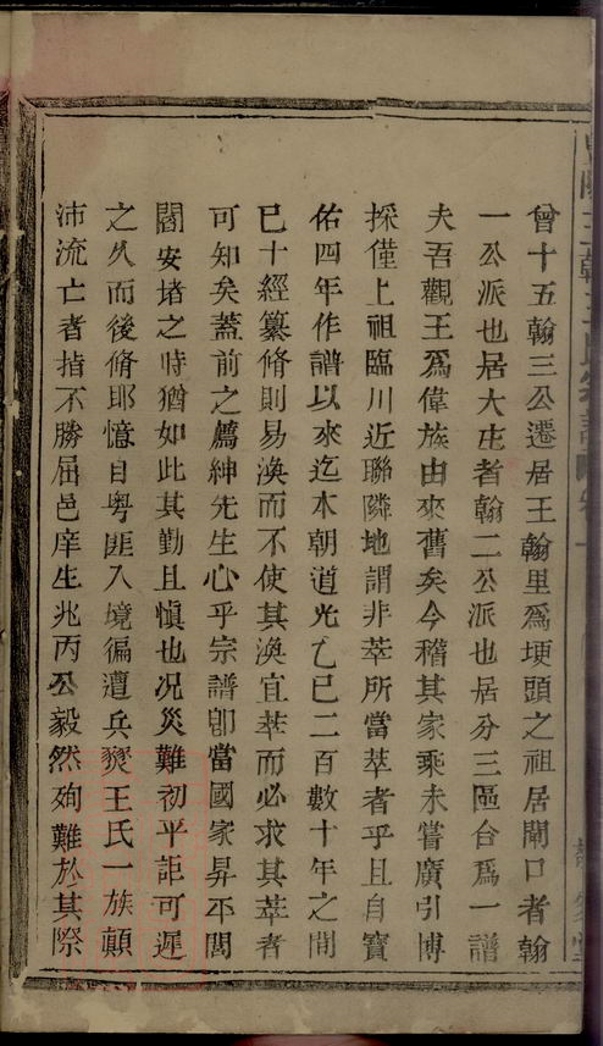 曾十五翰三公遷居王翰里爲埂頭之祖居閘口者翰
一公派也居大庄者翰二公派也居分三區合爲一譜
夫吾觀王爲偉族由來舊矣今稽其家乘未嘗廣引博
採僅上祖臨川近聯隣地謂非萃所當萃者乎且自寶
佑四年作譜以來迄本朝道光乙巳二百數十年之間
已十經纂脩則易渙而不使其渙宜萃而必求其萃者
可知矣蓋前之薦紳先生心乎宗譜卽當國家昇平閭
閻安堵之時猶如此其勤且愼也况災難初平詎可遲
之久而後脩耶憶自粵匪入境徧遭兵燹王氏一族顛
沛流亡者指不勝屈邑庠生兆丙公毅然殉難於其際